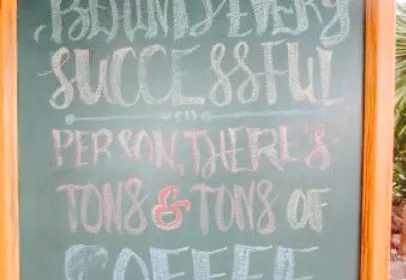 BEHIND EVERY
SUCCESSFUL
PERSON, THERE'S
TONS & TONS OF
COFFEE